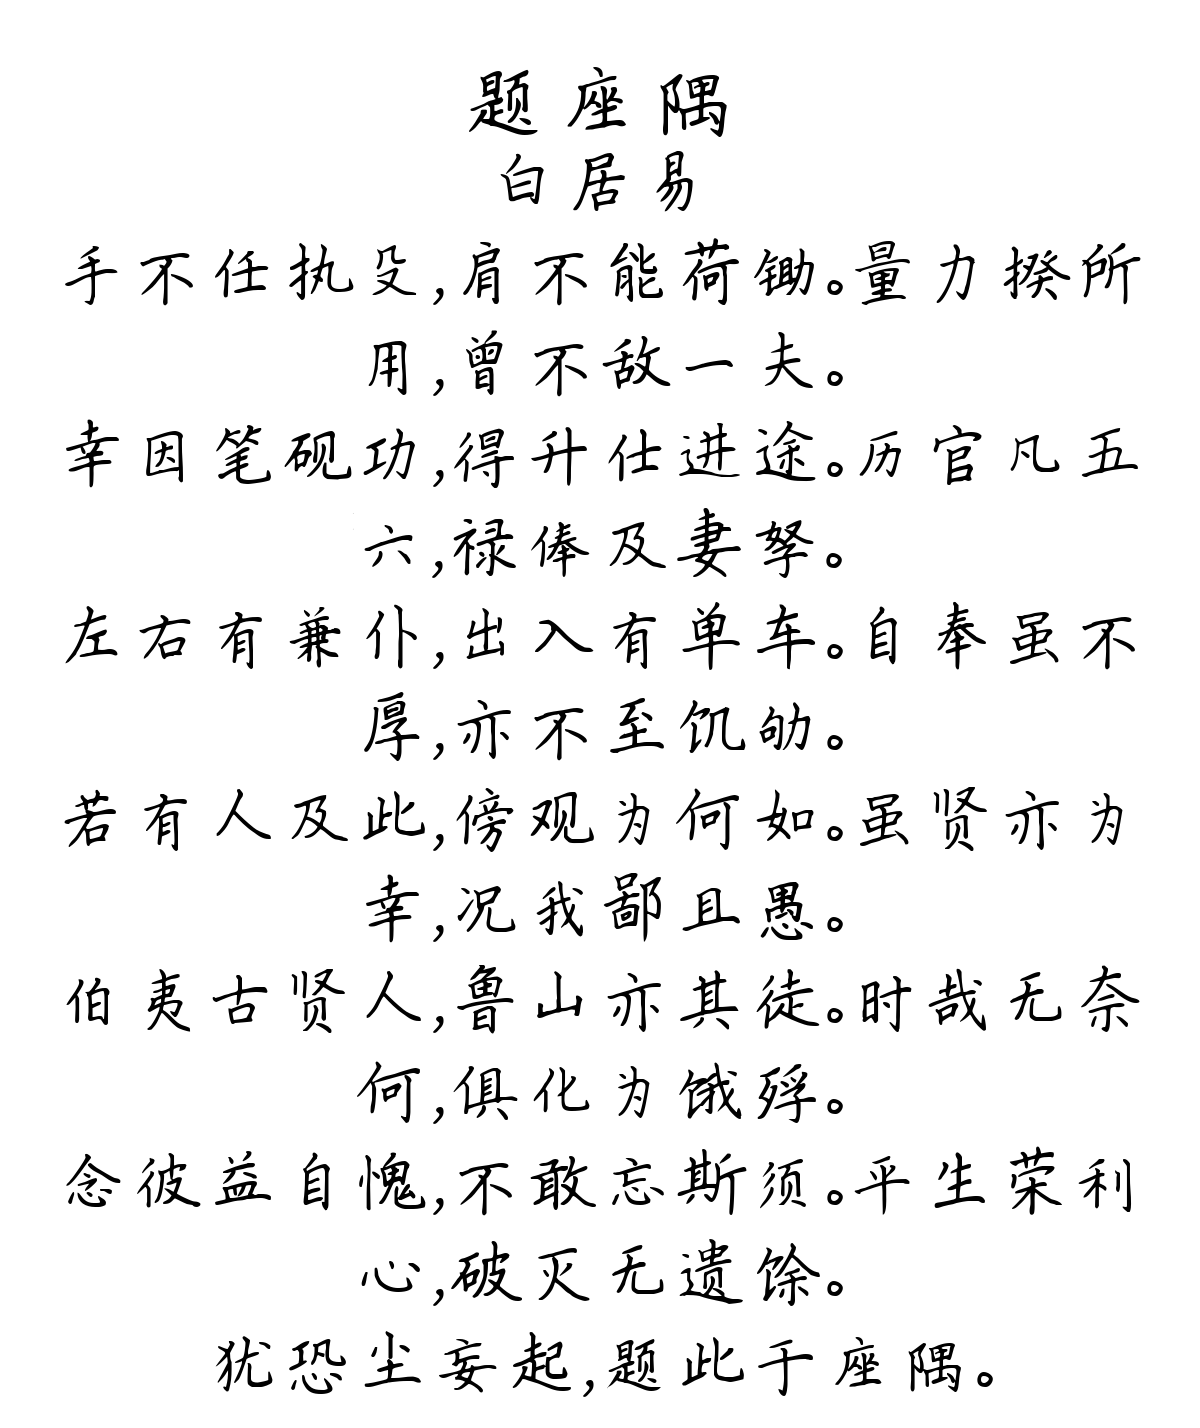 题座隅
白居易
手不任执殳,肩不能荷锄。量力揆所
用,曾不敌一夫。
幸因笔砚功,得升仕进途。历官凡五
六,禄俸及妻孥。
左右有兼仆,出入有单车。自奉虽不
厚,亦不至饥劬。
若有人及此,傍观为何如。虽贤亦为
幸,况我鄙且愚。
伯夷古贤人,鲁山亦其徒。时哉无奈
何,俱化为饿殍。
念彼益自愧,不敢忘斯须。平生荣利
心,破灭无遗馀。
犹恐尘妄起,题此于座隅。